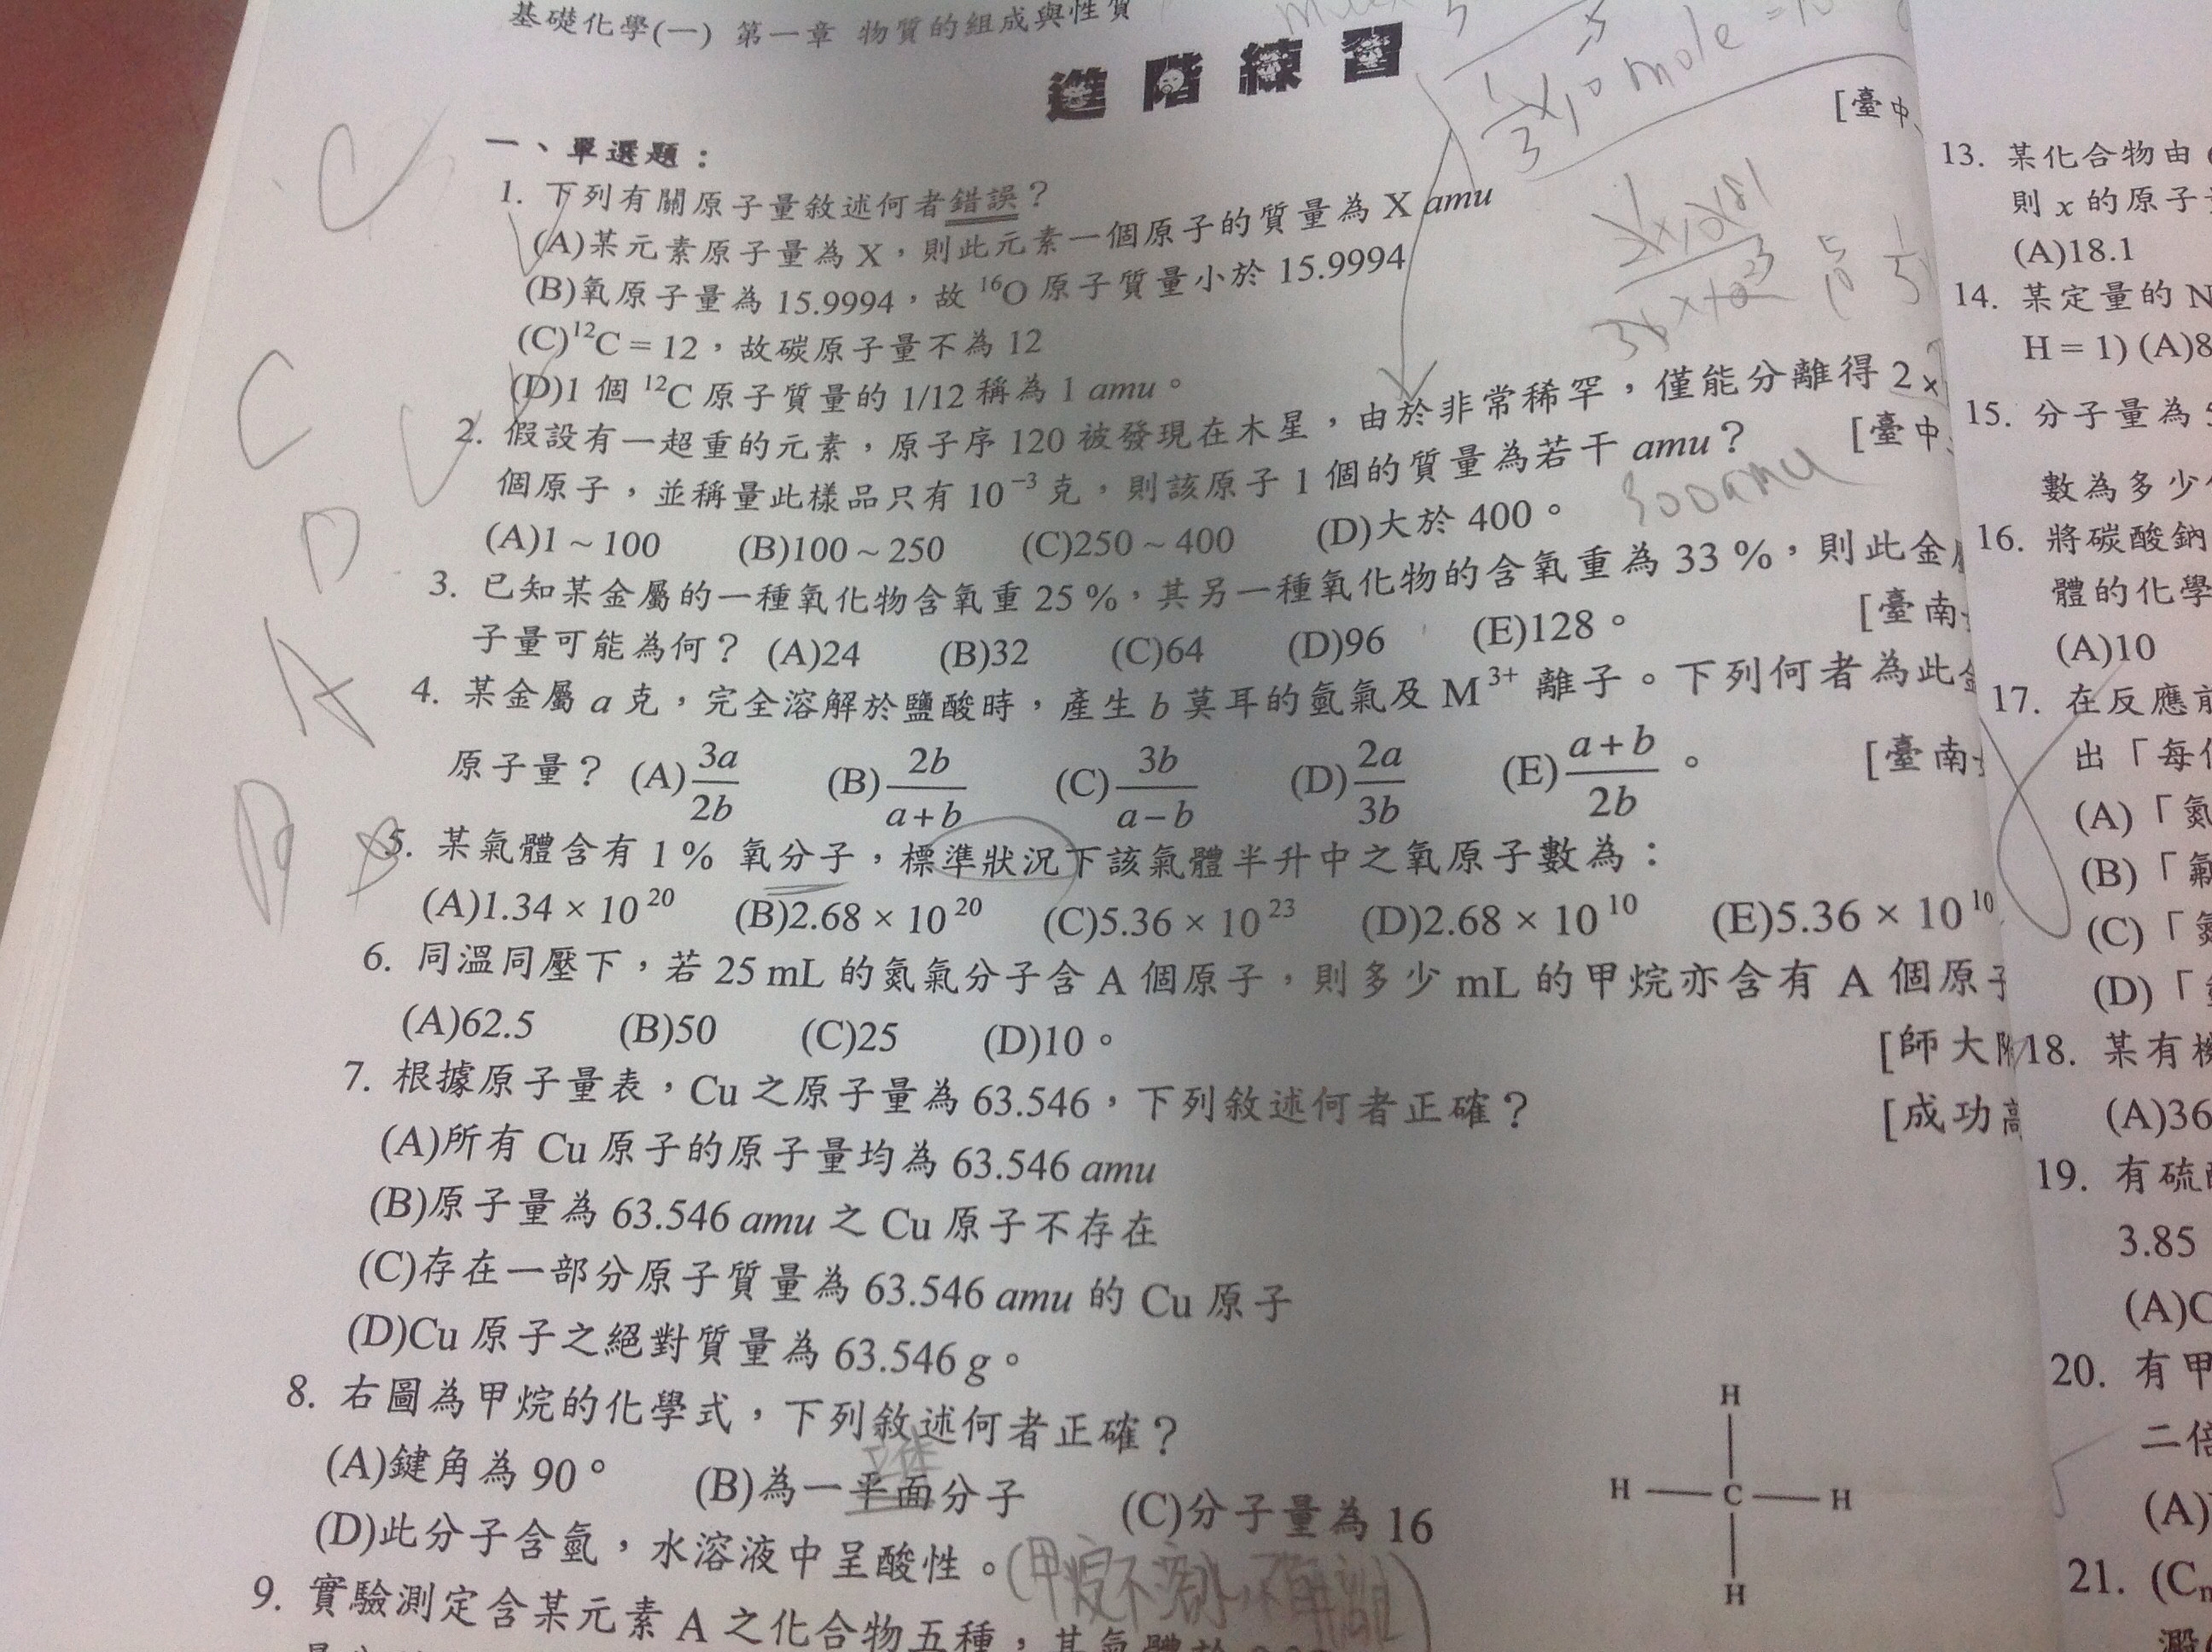 基礎化學(一) 第一章 物質的組成與性質
進階練習
一、單選題：
[臺中、
1. 下列有關原子量敘述何者錯誤？
(A)某元素原子量為 X，則此元素一個原子的質量為 X amu
(B)氧原子量為 15.9994，故 ¹⁶O 原子質量小於 15.9994
(C)¹²C = 12，故碳原子量不為 12
(D)1 個 ¹²C 原子質量的 1/12 稱為 1 amu。
2. 假設有一超重的元素，原子序 120 被發現在木星，由於非常稀罕，僅能分離得 2 ×
個原子，並稱量此樣品只有 10⁻³ 克，則該原子 1 個的質量為若干 amu？ [臺中
300amu
(A)1 ~ 100 (B)100 ~ 250 (C)250 ~ 400 (D)大於 400。
3. 已知某金屬的一種氧化物含氧重 25 %，其另一種氧化物的含氧重為 33 %，則此金
子量可能為何？ (A)24 (B)32 (C)64 (D)96 (E)128。 [臺南
4. 某金屬 a 克，完全溶解於鹽酸時，產生 b 莫耳的氫氣及 M³⁺ 離子。下列何者為此
原子量？ (A) 3a/2b (B) 2b/(a+b) (C) 3b/(a−b) (D) 2a/3b (E) (a+b)/2b。 [臺南
5. 某氣體含有 1 % 氧分子，標準狀況下該氣體半升中之氧原子數為：
(A)1.34 × 10²⁰ (B)2.68 × 10²⁰ (C)5.36 × 10²³ (D)2.68 × 10¹⁰ (E)5.36 × 10¹⁰
6. 同溫同壓下，若 25 mL 的氮氣分子含 A 個原子，則多少 mL 的甲烷亦含有 A 個原
(A)62.5 (B)50 (C)25 (D)10。 [師大
7. 根據原子量表，Cu 之原子量為 63.546，下列敘述何者正確？ [成功
(A)所有 Cu 原子的原子量均為 63.546 amu
(B)原子量為 63.546 amu 之 Cu 原子不存在
(C)存在一部分原子質量為 63.546 amu 的 Cu 原子
(D)Cu 原子之絕對質量為 63.546 g。
8. 右圖為甲烷的化學式，下列敘述何者正確？
(A)鍵角為 90° (B)為一平面分子 (C)分子量為 16
(D)此分子含氫，水溶液中呈酸性。
H
H C H
H
9. 實驗測定含某元素 A 之化合物五種，其氣體於
13. 某化合物由
則 x 的原子
(A)18.1
14. 某定量的 N
H = 1) (A)8
15. 分子量為
數為多少
16. 將碳酸鈉
體的化學
(A)10
17. 在反應前
出「每
(A)「氮
(B)「氟
(C)「
(D)「
18. 某有
(A)36
19. 有硫
3.85
(A)C
20. 有甲
二倍
(A)
21. (C